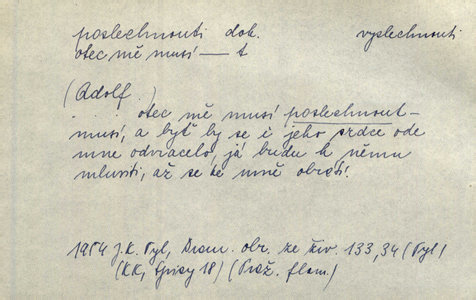 poslechnouti dok. vyslechnouti
otec mě musí — t
(Adolf.)
. . . . otec mě musí poslechnout –
musí, a byť by se i jeho srdce ode
mne odvracelo, já budu k němu
mluviti, až se ke mně obrátí.
1954 J. K. Tyl, Dram. obr. ze živ. 133,34 (Tyl)
(KK, Spisy 18) (Praž. flam.)